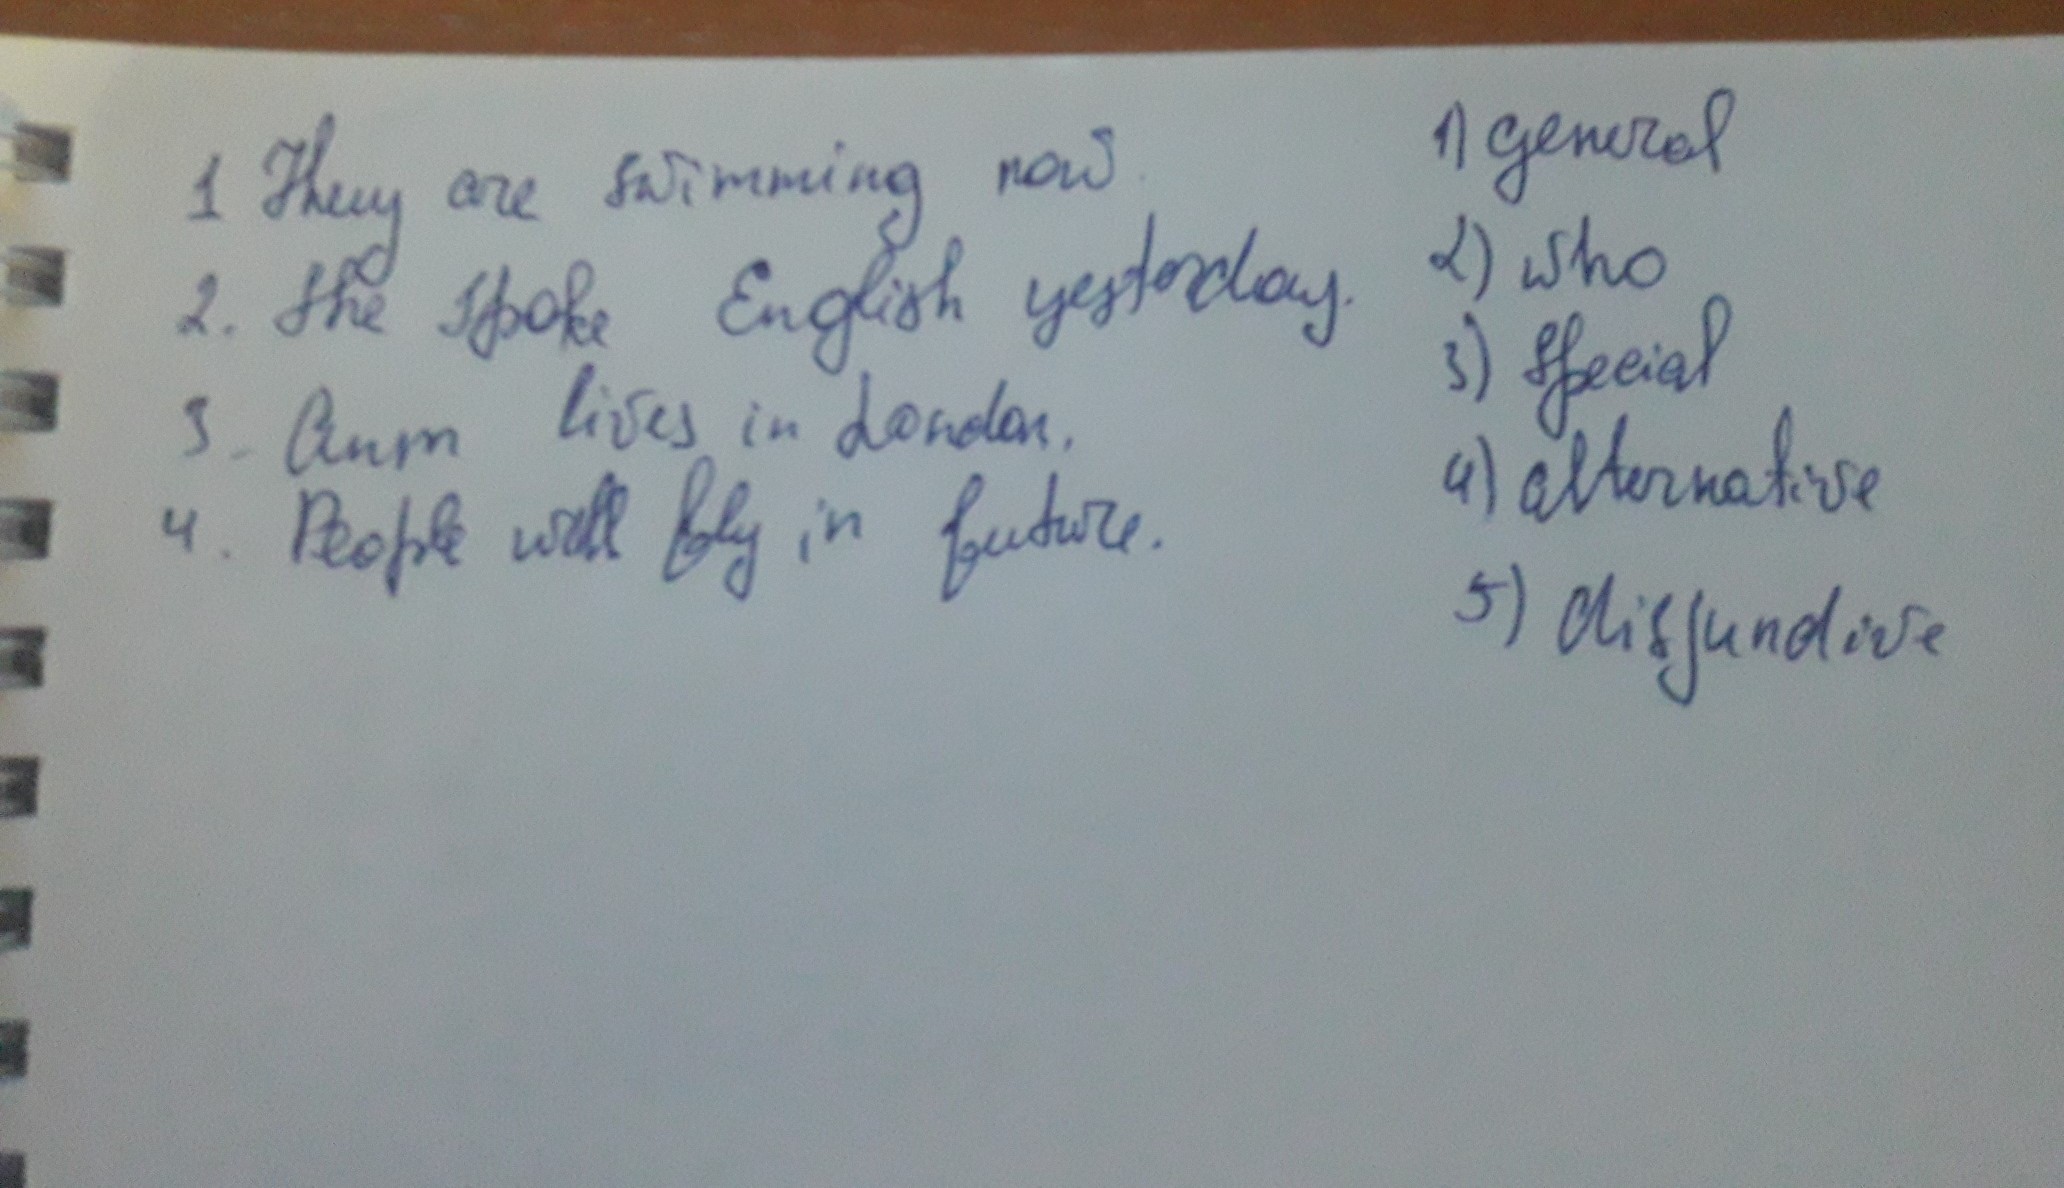 1 They are swimming now.
2. She spoke English yesterday.
3. Ann lives in London.
4. People will fly in future.
1) general
2) who
3) special
4) alternative
5) disjunctive